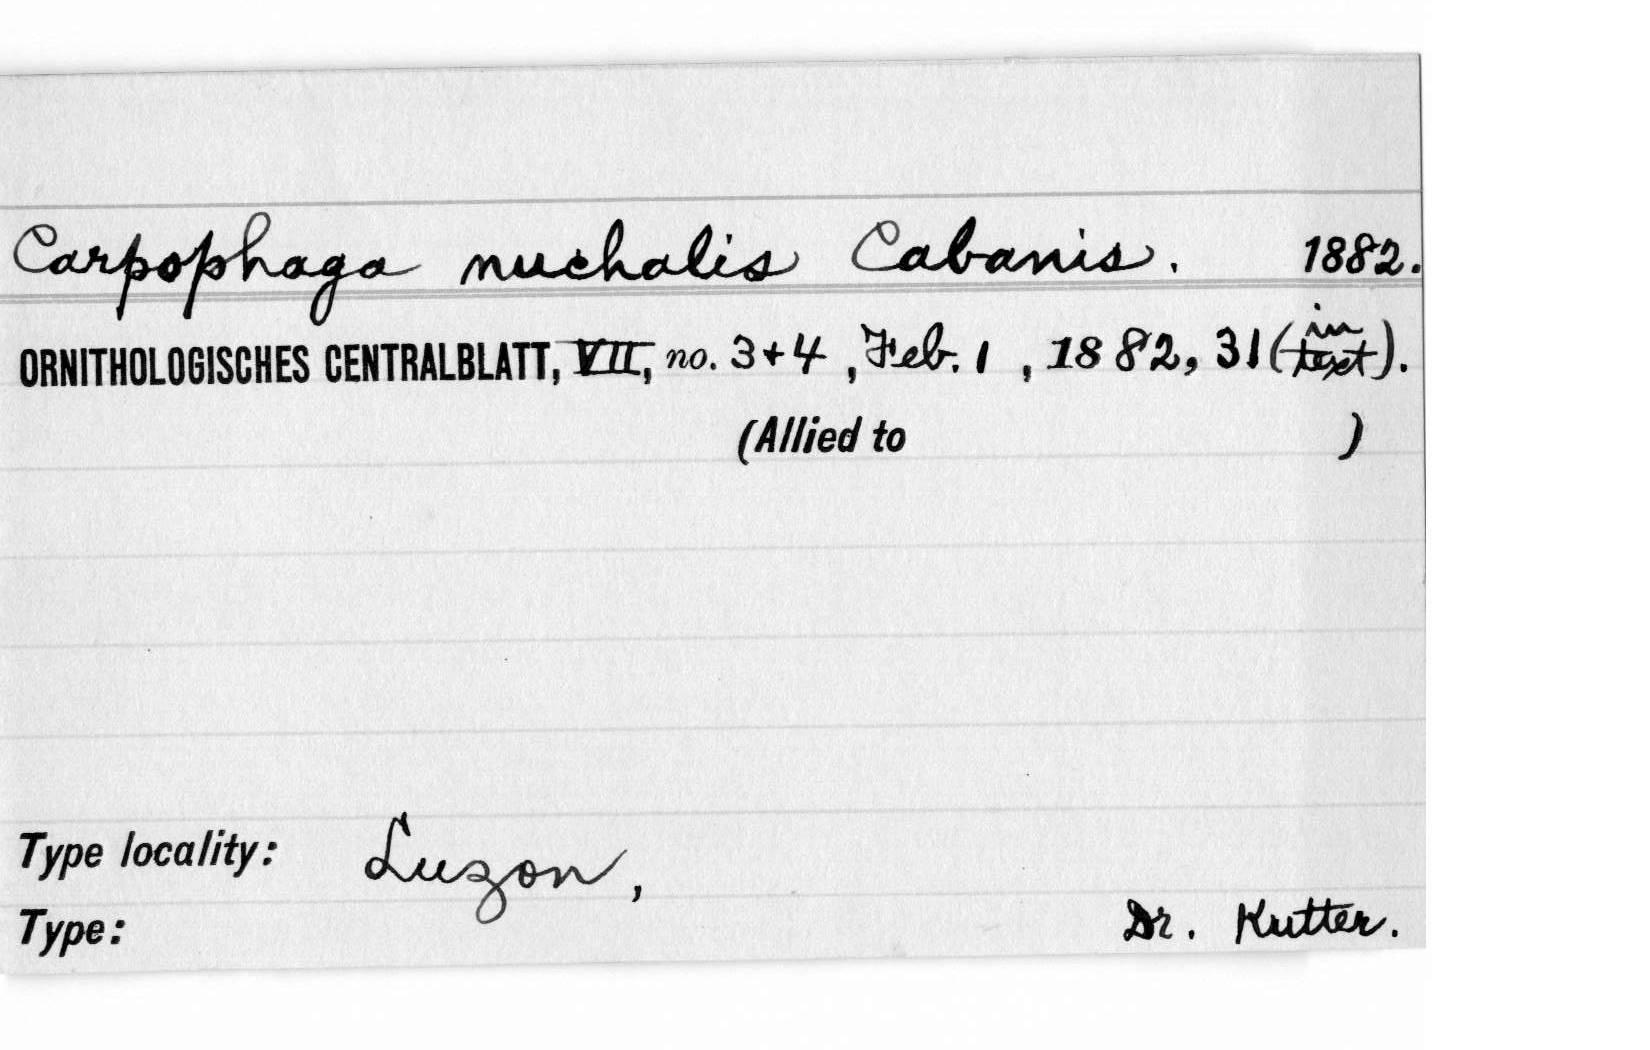 Carpophaga nuchalis Cabanis. 1882.
ORNITHOLOGISCHES CENTRALBLATT, VII, no. 3+4, Feb. 1, 1882, 31 (in text).
(Allied to )
Type locality: Luzon,
Type: Dr. Kutter.